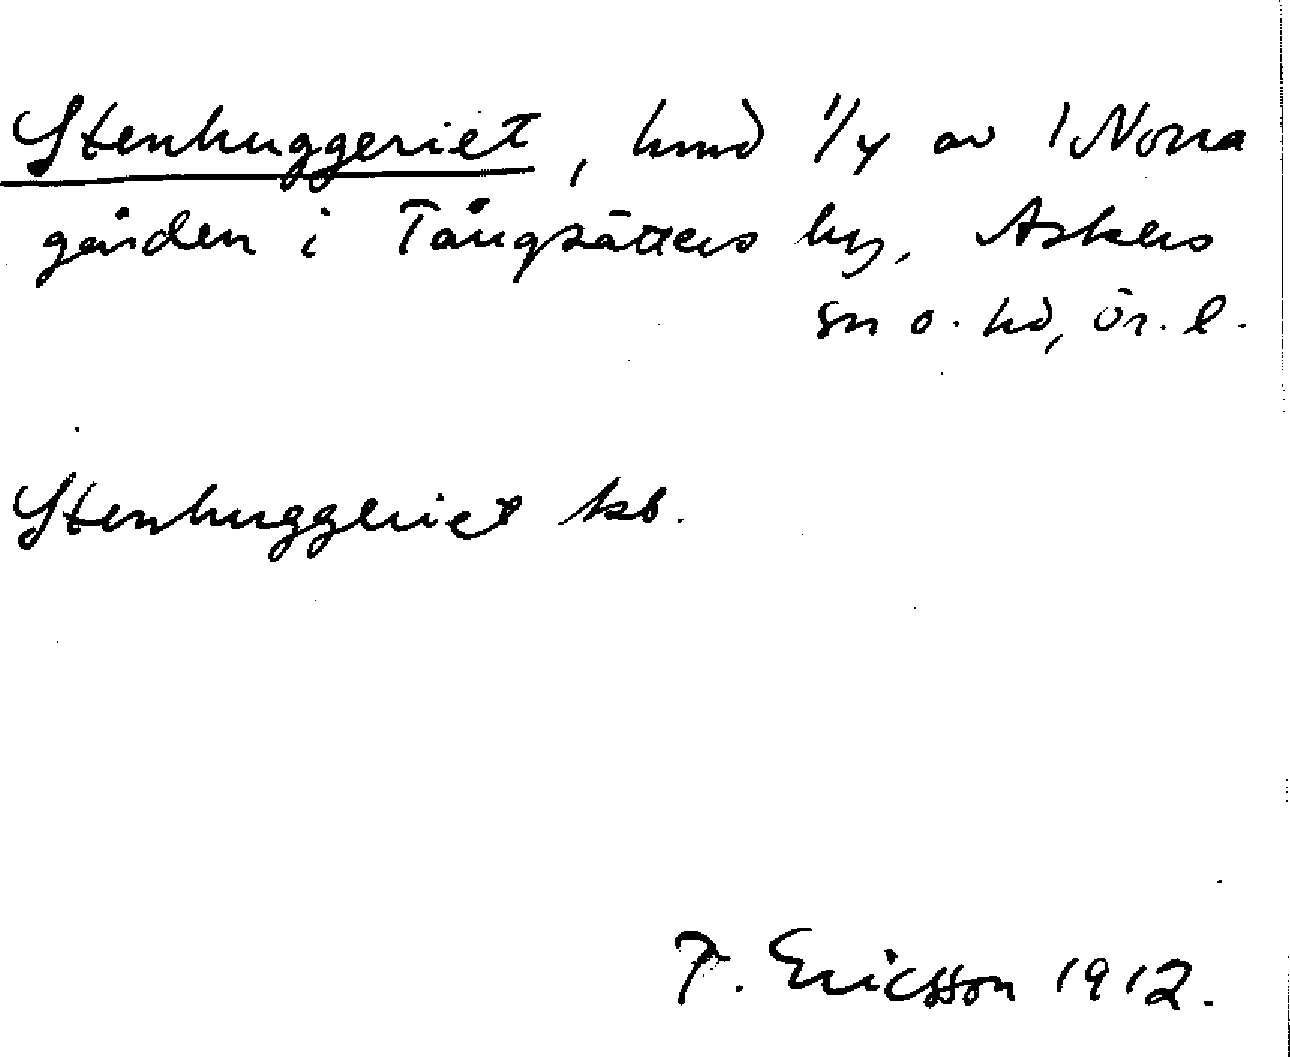 Stenhuggeriet, hmd 1/4 av 1 Norra
gården i Tångsätters by, Askers
sn o. hd, Ör. l.
Stenhuggeriet kb.
T. Ericsson 1912.